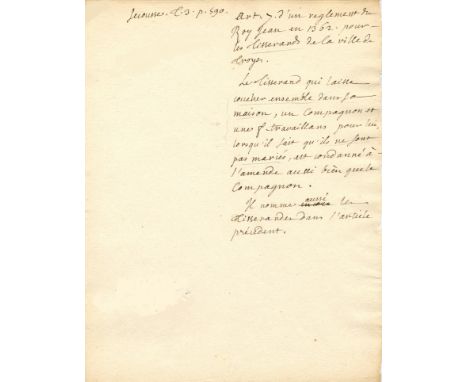 Secousse. t.3. p. 590.
Art. 7. d'un reglement du
Roy Jean en 1362. pour
les tisserands de la ville de
Troyes.
Le tisserand qui laisse
coucher ensemble dans sa
maison, un Compagnon et
une f. travaillans pour lui,
lorsqu'il sait qu'ils ne sont
pas mariés, est condanné à
l'amende aussi bien que le
Compagnon.
Il nomme aussi les
tisserandes dans l'article
précédent.